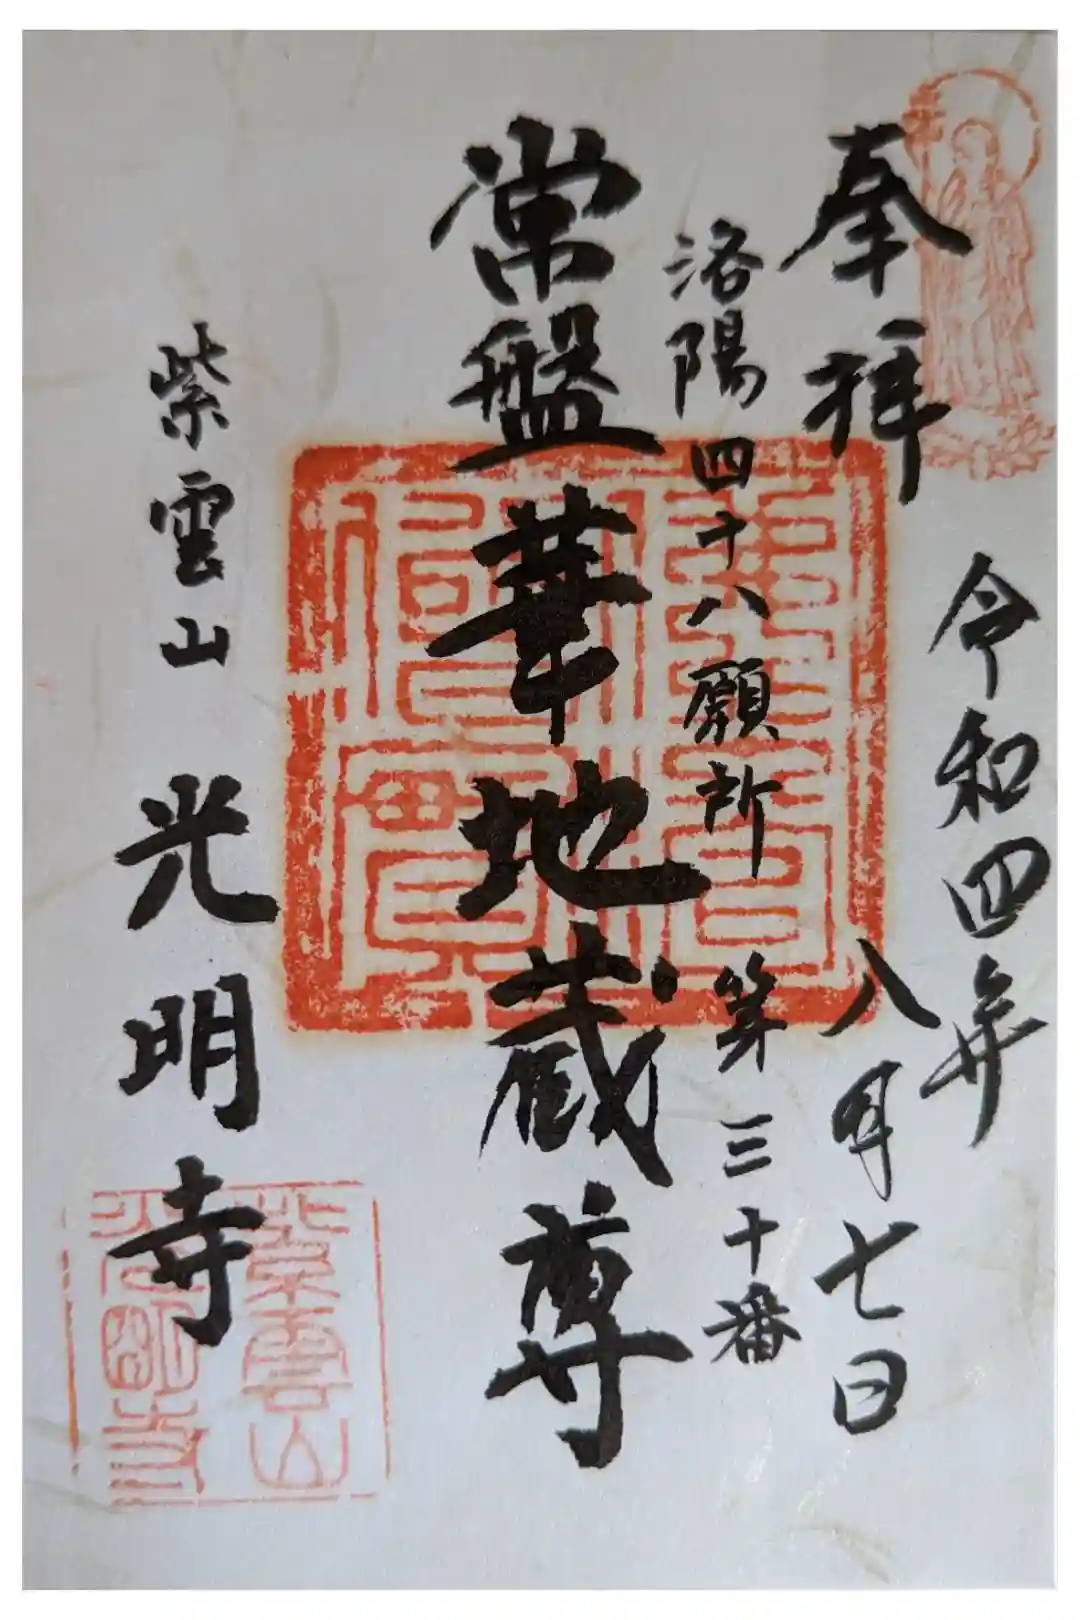 奉拝
令和四年
八月七日
洛陽四十八願所 第三十番
常盤華地蔵尊
紫雲山 光明寺
紫雲山
光明寺